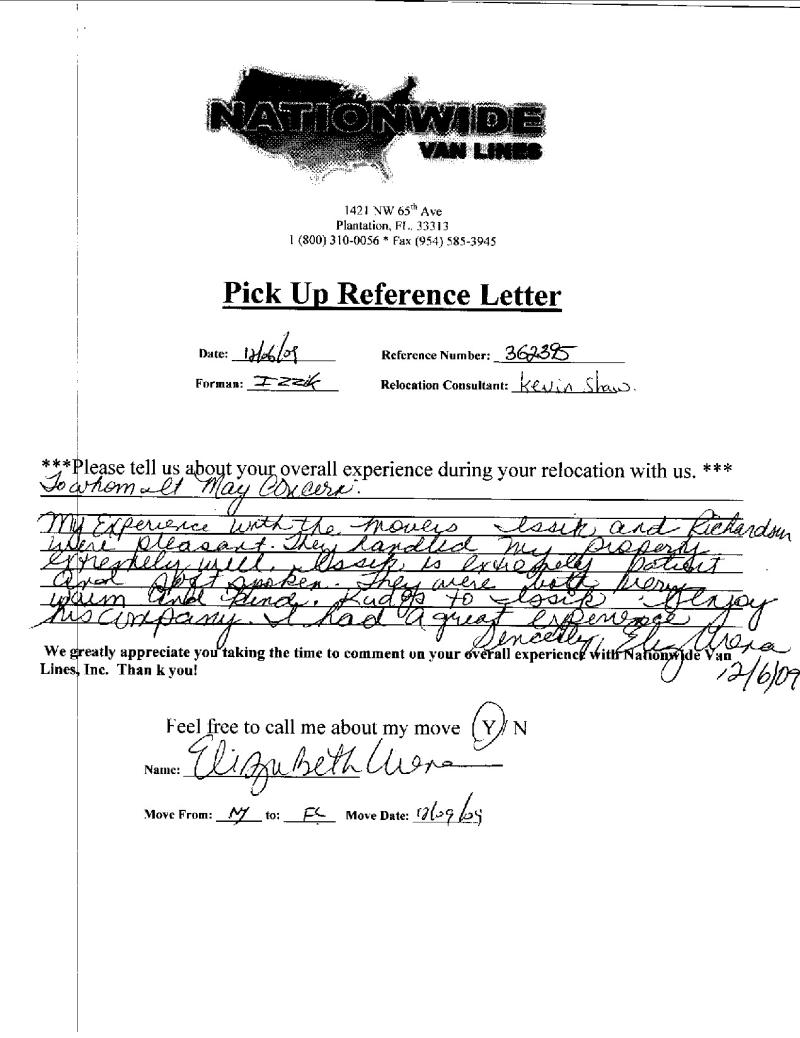 NATIONWIDE
VAN LINES
1421 NW 65th Ave
Plantation, FL. 33313
1 (800) 310-0056 * Fax (954) 585-3945
Pick Up Reference Letter
Date: 12/06/09 Reference Number: 362395
Forman: Izzik Relocation Consultant: Kevin Shaw.
***Please tell us about your overall experience during your relocation with us. ***
To whom It May Concern:
My Experience with the movers Issik and Richardson
were pleasant. They handled my property
extremely well. Issik is extremely patient
and soft spoken. They were both very
warm and kind. Kudos to Issik I enjoy
his company. I had a great experience
Sincerely, Eliz Arena
12/6/09
We greatly appreciate you taking the time to comment on your overall experience with Nationwide Van
Lines, Inc. Thank you!
Feel free to call me about my move Y/N
Name: Elizabeth Arena
Move From: NY to: FL Move Date: